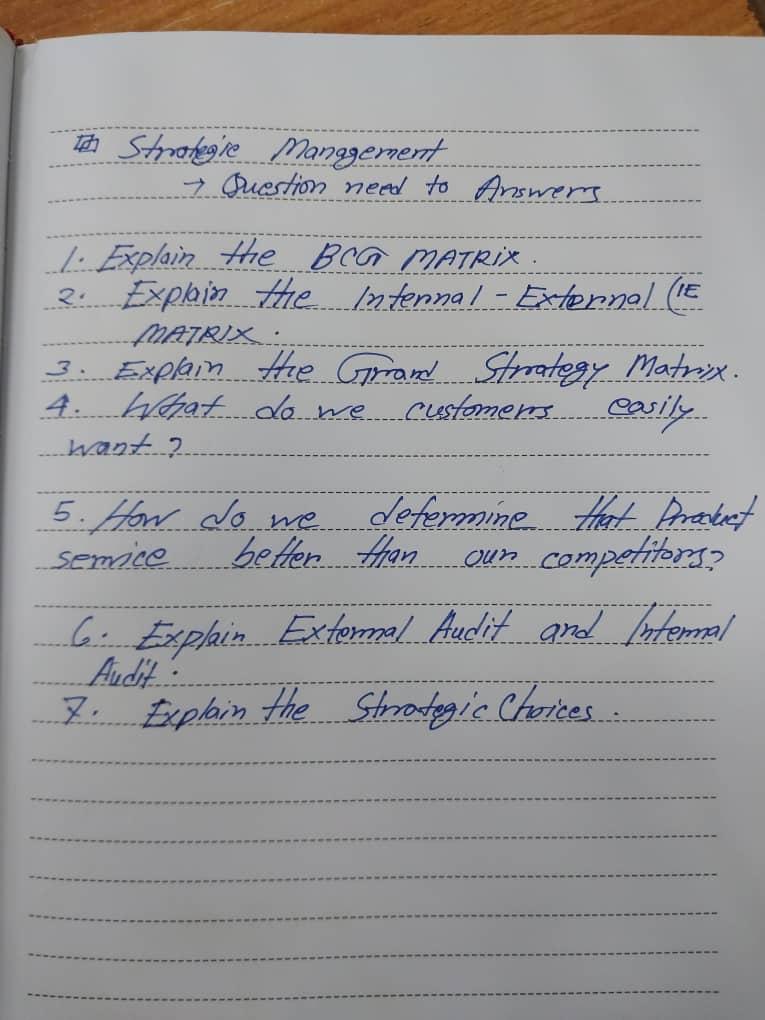 Strategic Management
→ Question need to Answers
1. Explain the BCG MATRIX.
2. Explain the Internal - External (IE
MATRIX.
3. Explain the Grand Strategy Matrix.
4. What do we customers easily
want?
5. How do we determine that Product
service better than our competitors?
6. Explain External Audit and Internal
Audit.
7. Explain the Strategic Choices.